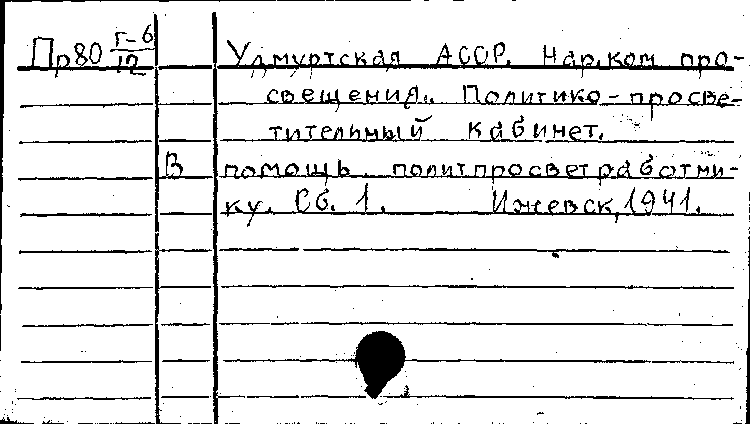 Пр80 Г-6/12 Удмуртская АССР. Нар.ком про-
свещения. Политико-просве-
тительный кабинет.
В помощь политпросветработни-
ку. Сб. 1. Ижевск, 1941.